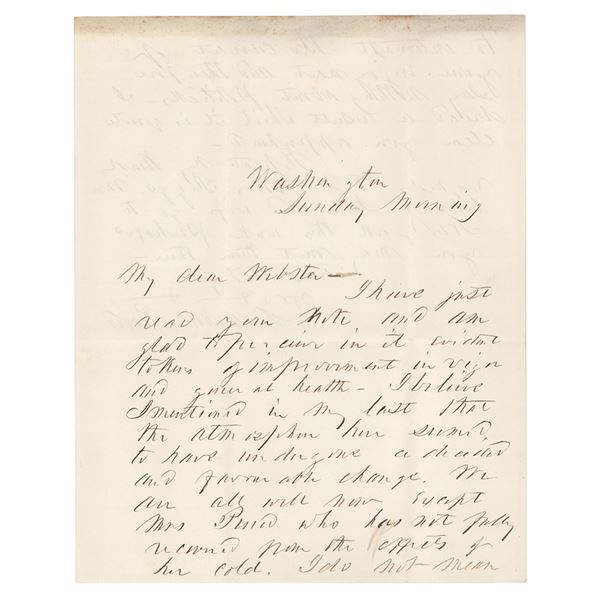 Washington
Sunday Morning
My dear Webster—
I have just
read your Note and am
glad to perceive in it evident
tokens of improvement in vigor
and general health – I believe
I mentioned in my last that
the atmosphere here seemed
to have undergone a decided
and favourable change. We
are all well now except
Mrs Pierce who has not fully
recovered from the effects of
her cold. I do not mean